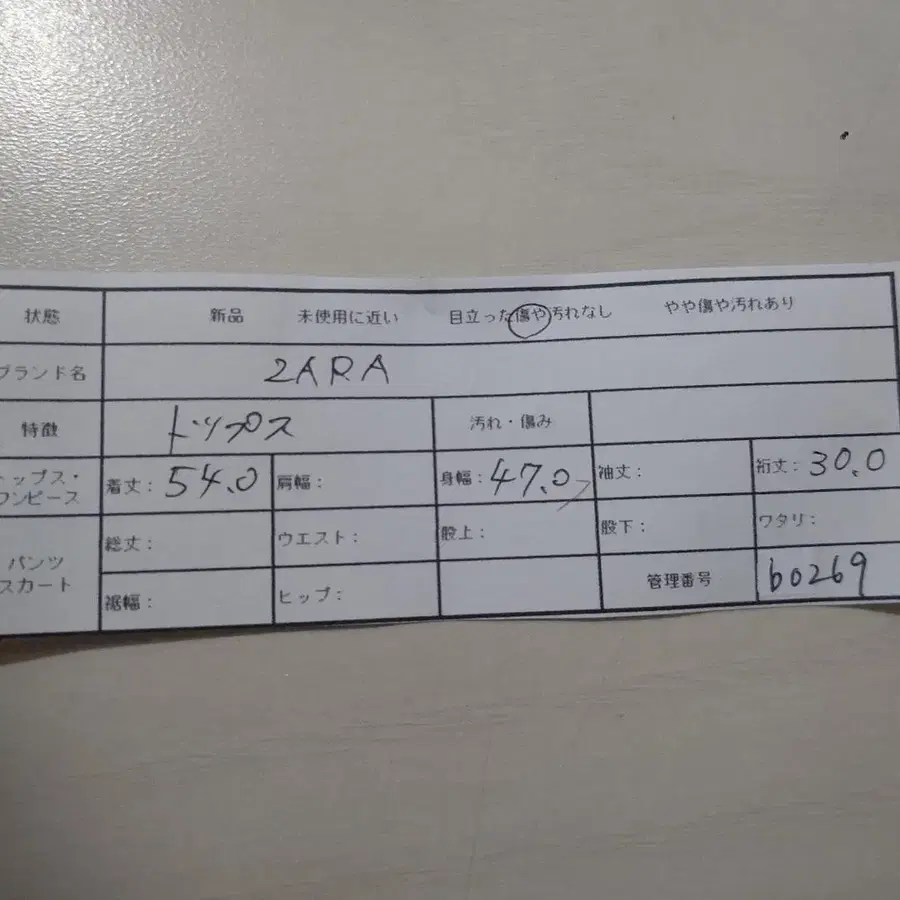 状態 新品 未使用に近い 目立った傷や汚れなし やや傷や汚れあり
ブランド名 ZARA
特徴 トップス 汚れ・傷み
トップス・ワンピース 着丈: 54.0 肩幅: 身幅: 47.0 袖丈: 裄丈: 30.0
パンツ スカート 総丈: ウエスト: 股上: 股下: ワタリ:
裾幅: ヒップ: 管理番号 b0269